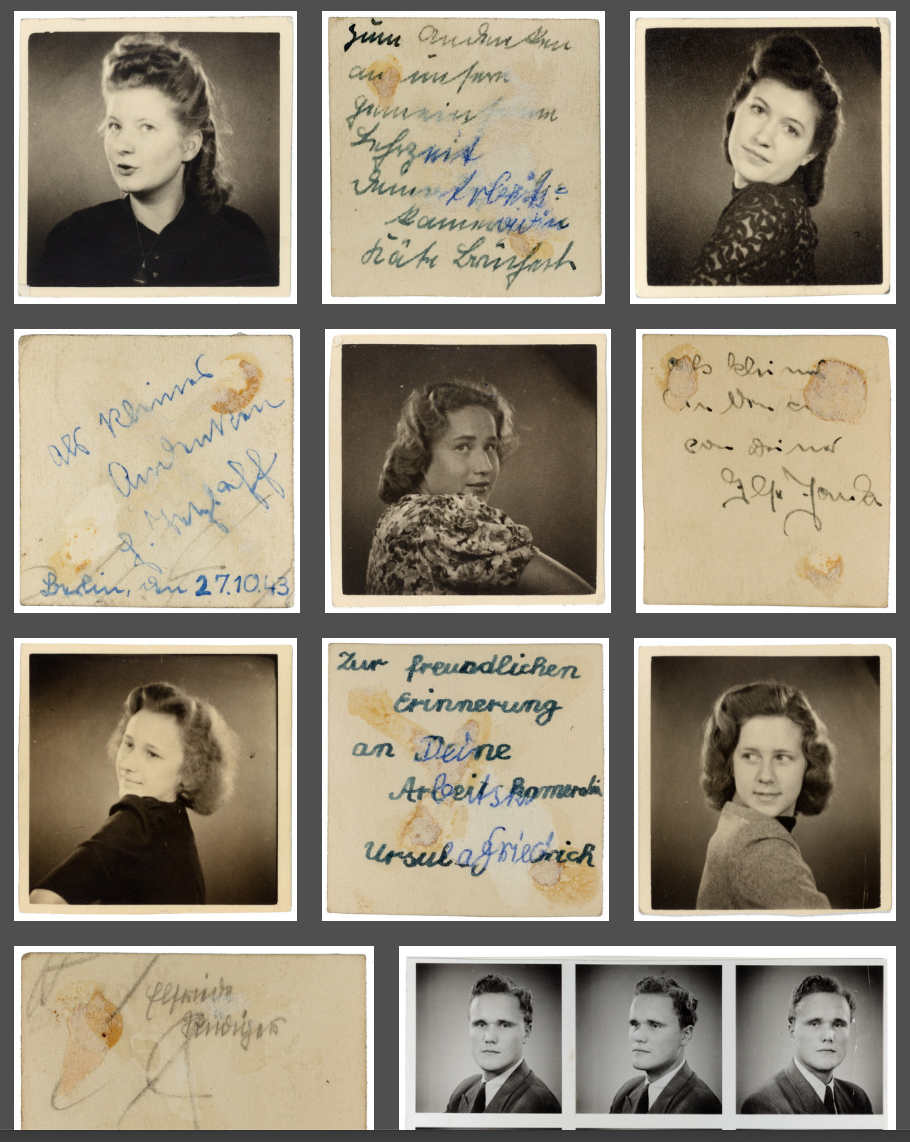 Zum Andenken
an unsere
gemeinsame
Lehrzeit
Deine Arbeits=
kameradin
Käte
Als kleines
Andenken
Berlin, den 27.10.43
Als kleine
von deiner
Ilse
Zur freundlichen
Erinnerung
an Deine
Arbeitskameradin
Ursula Friedrich
Elfriede
Rüdiger